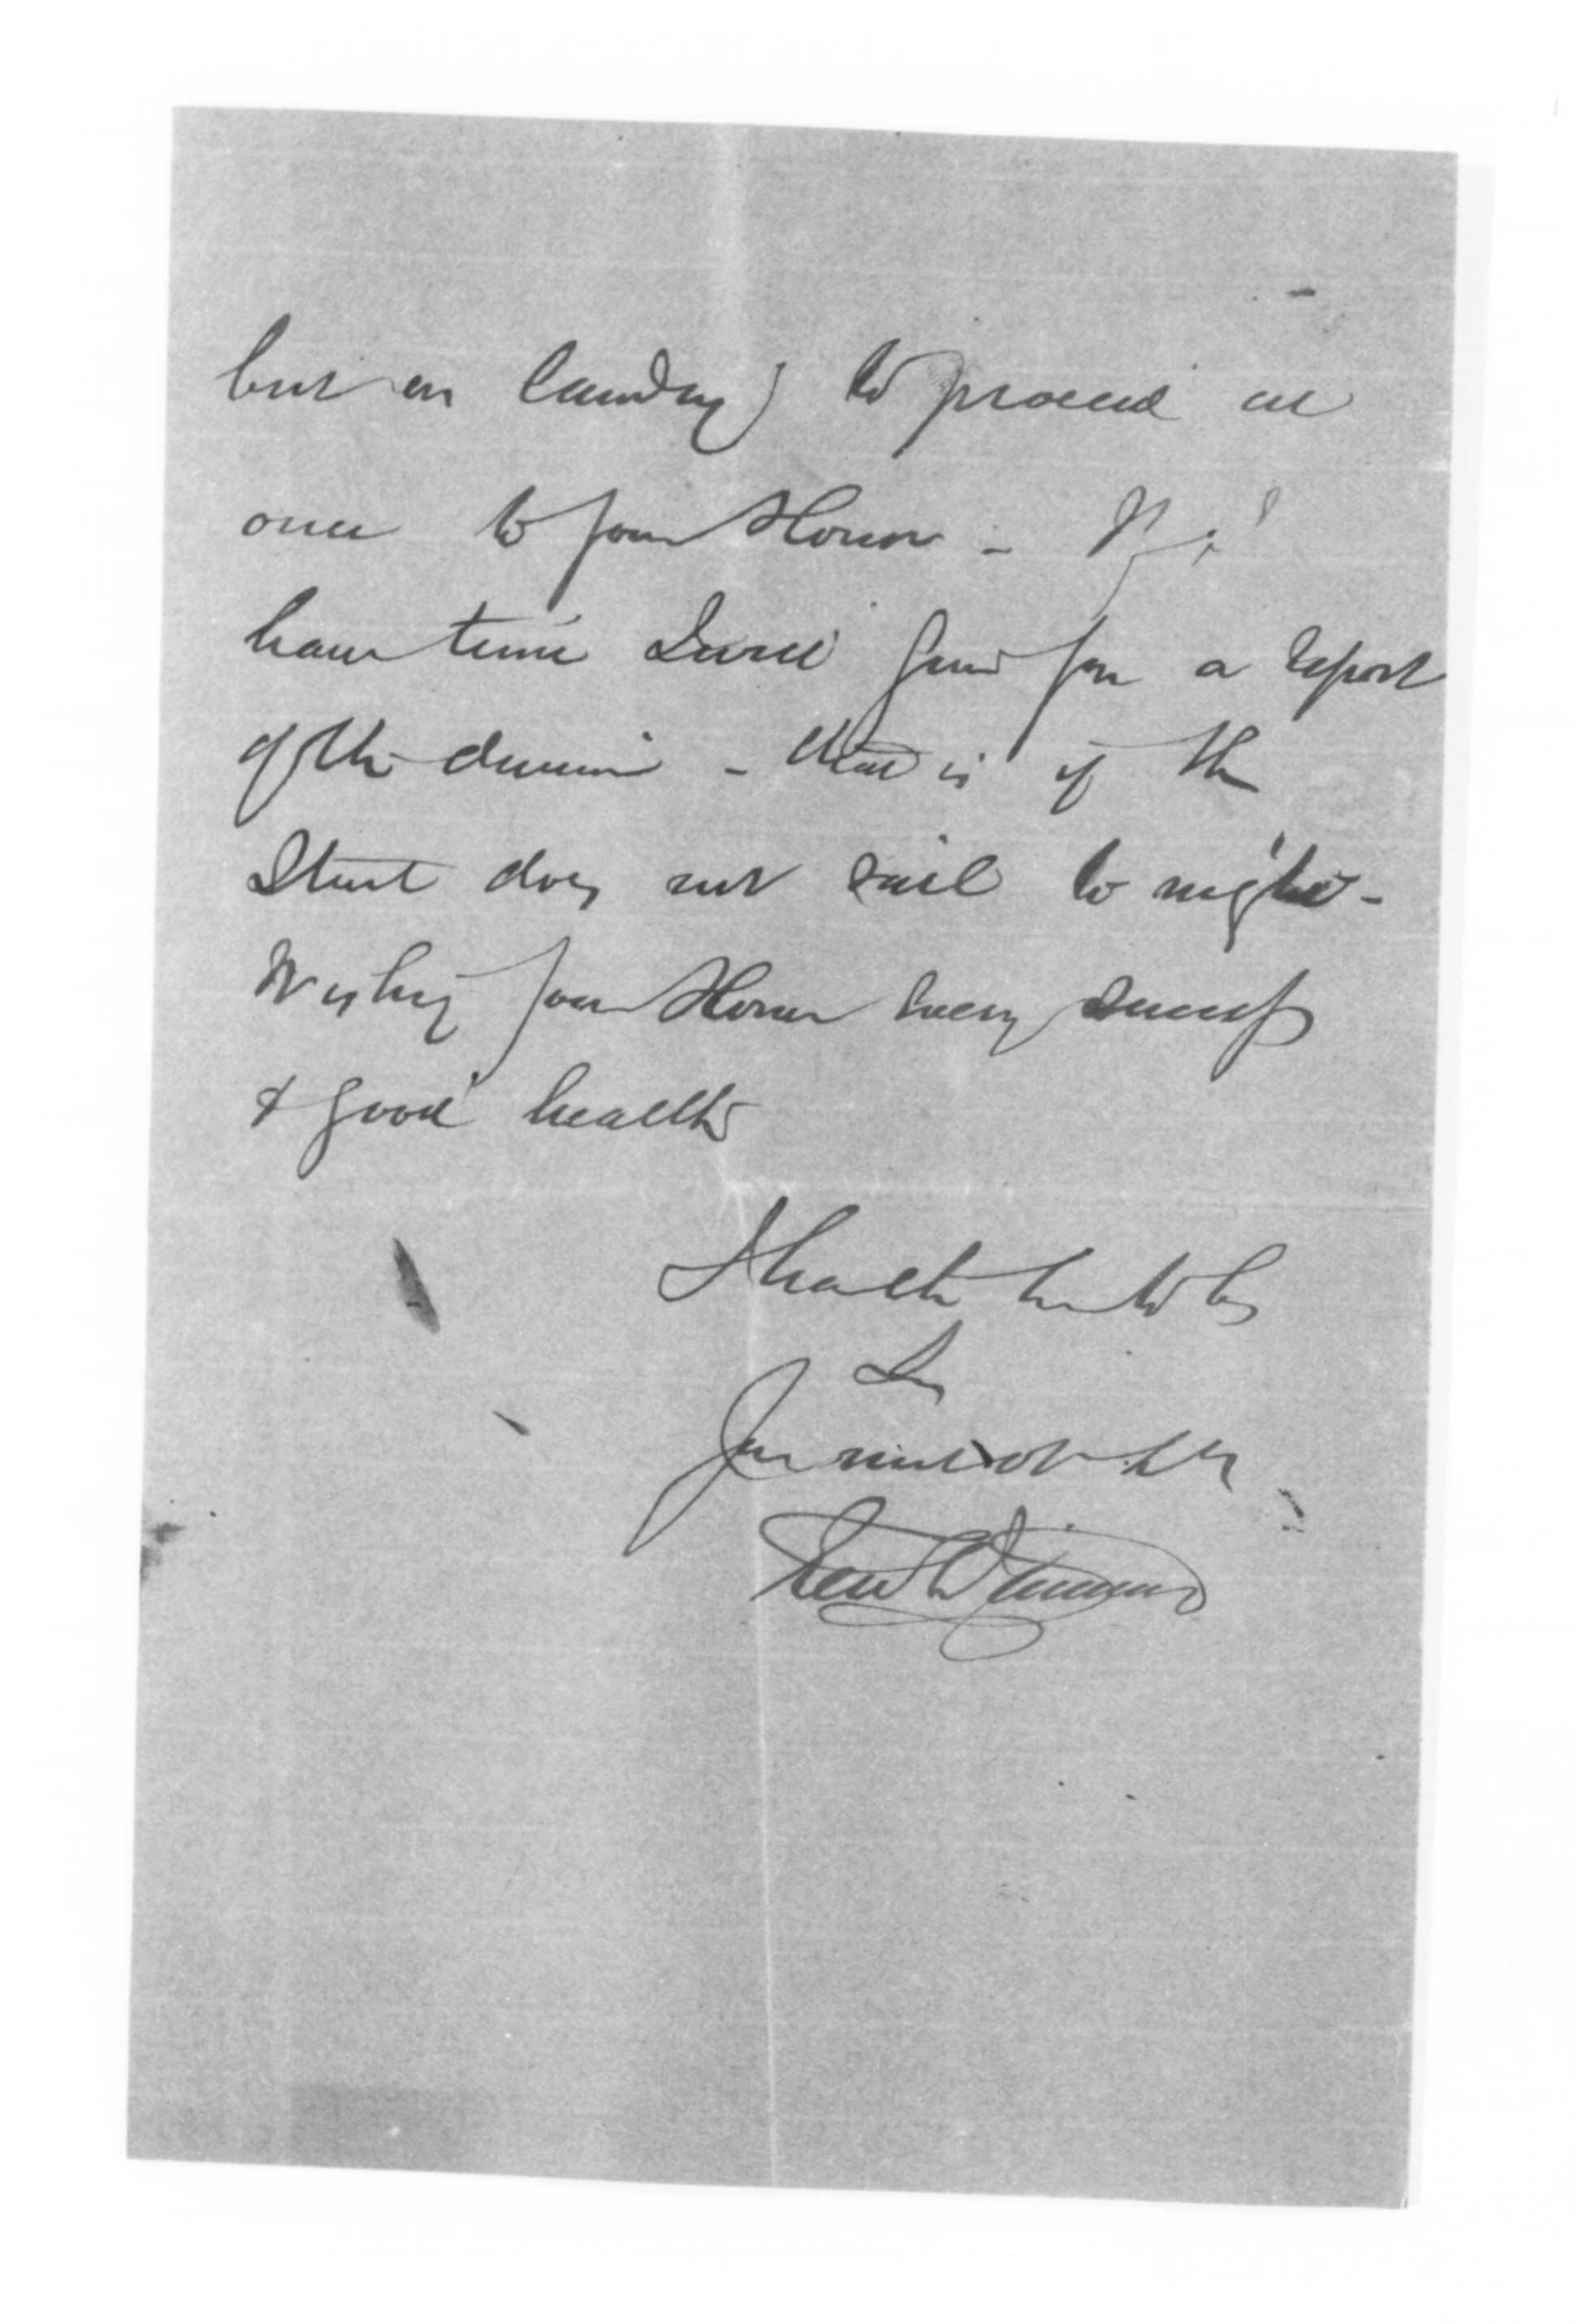 but on landing to proceed at
once to your Honor - If I
have time I will send you a report
of the dinner - that is if the
Stunt does not sail to night -
Wishing your Honor every success
& good health
I have the honor to be
Sir
Your most ob st